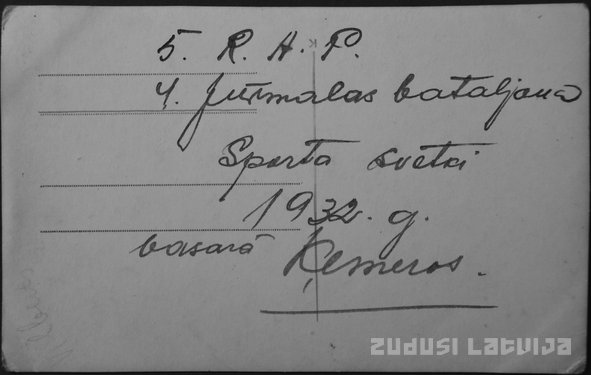 5. R. A. P.
4. Jūrmalas bataljona
Sporta svētki
1932. g.
vasarā Ķemeros.
ZUDUSI LATVIJA